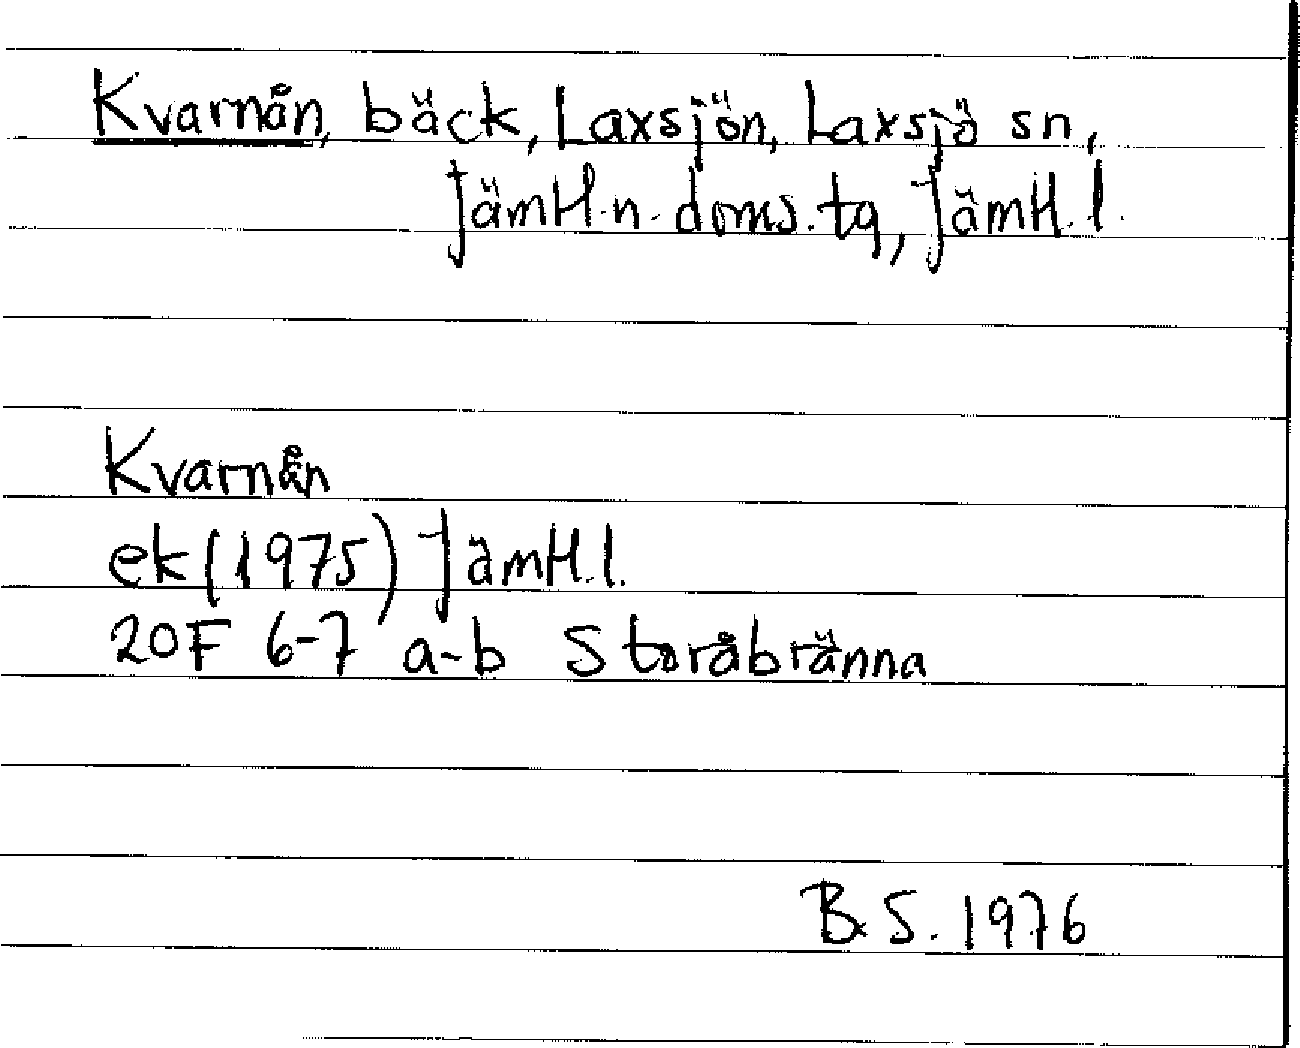 Kvarnån, bäck, Laxsjön, Laxsjö sn,
Jämtl. n. doms. tg, Jämtl. l.
Kvarnån
ek (1975) Jämtl. l.
20F 6-7 a-b Storåbränna
B.S. 1976